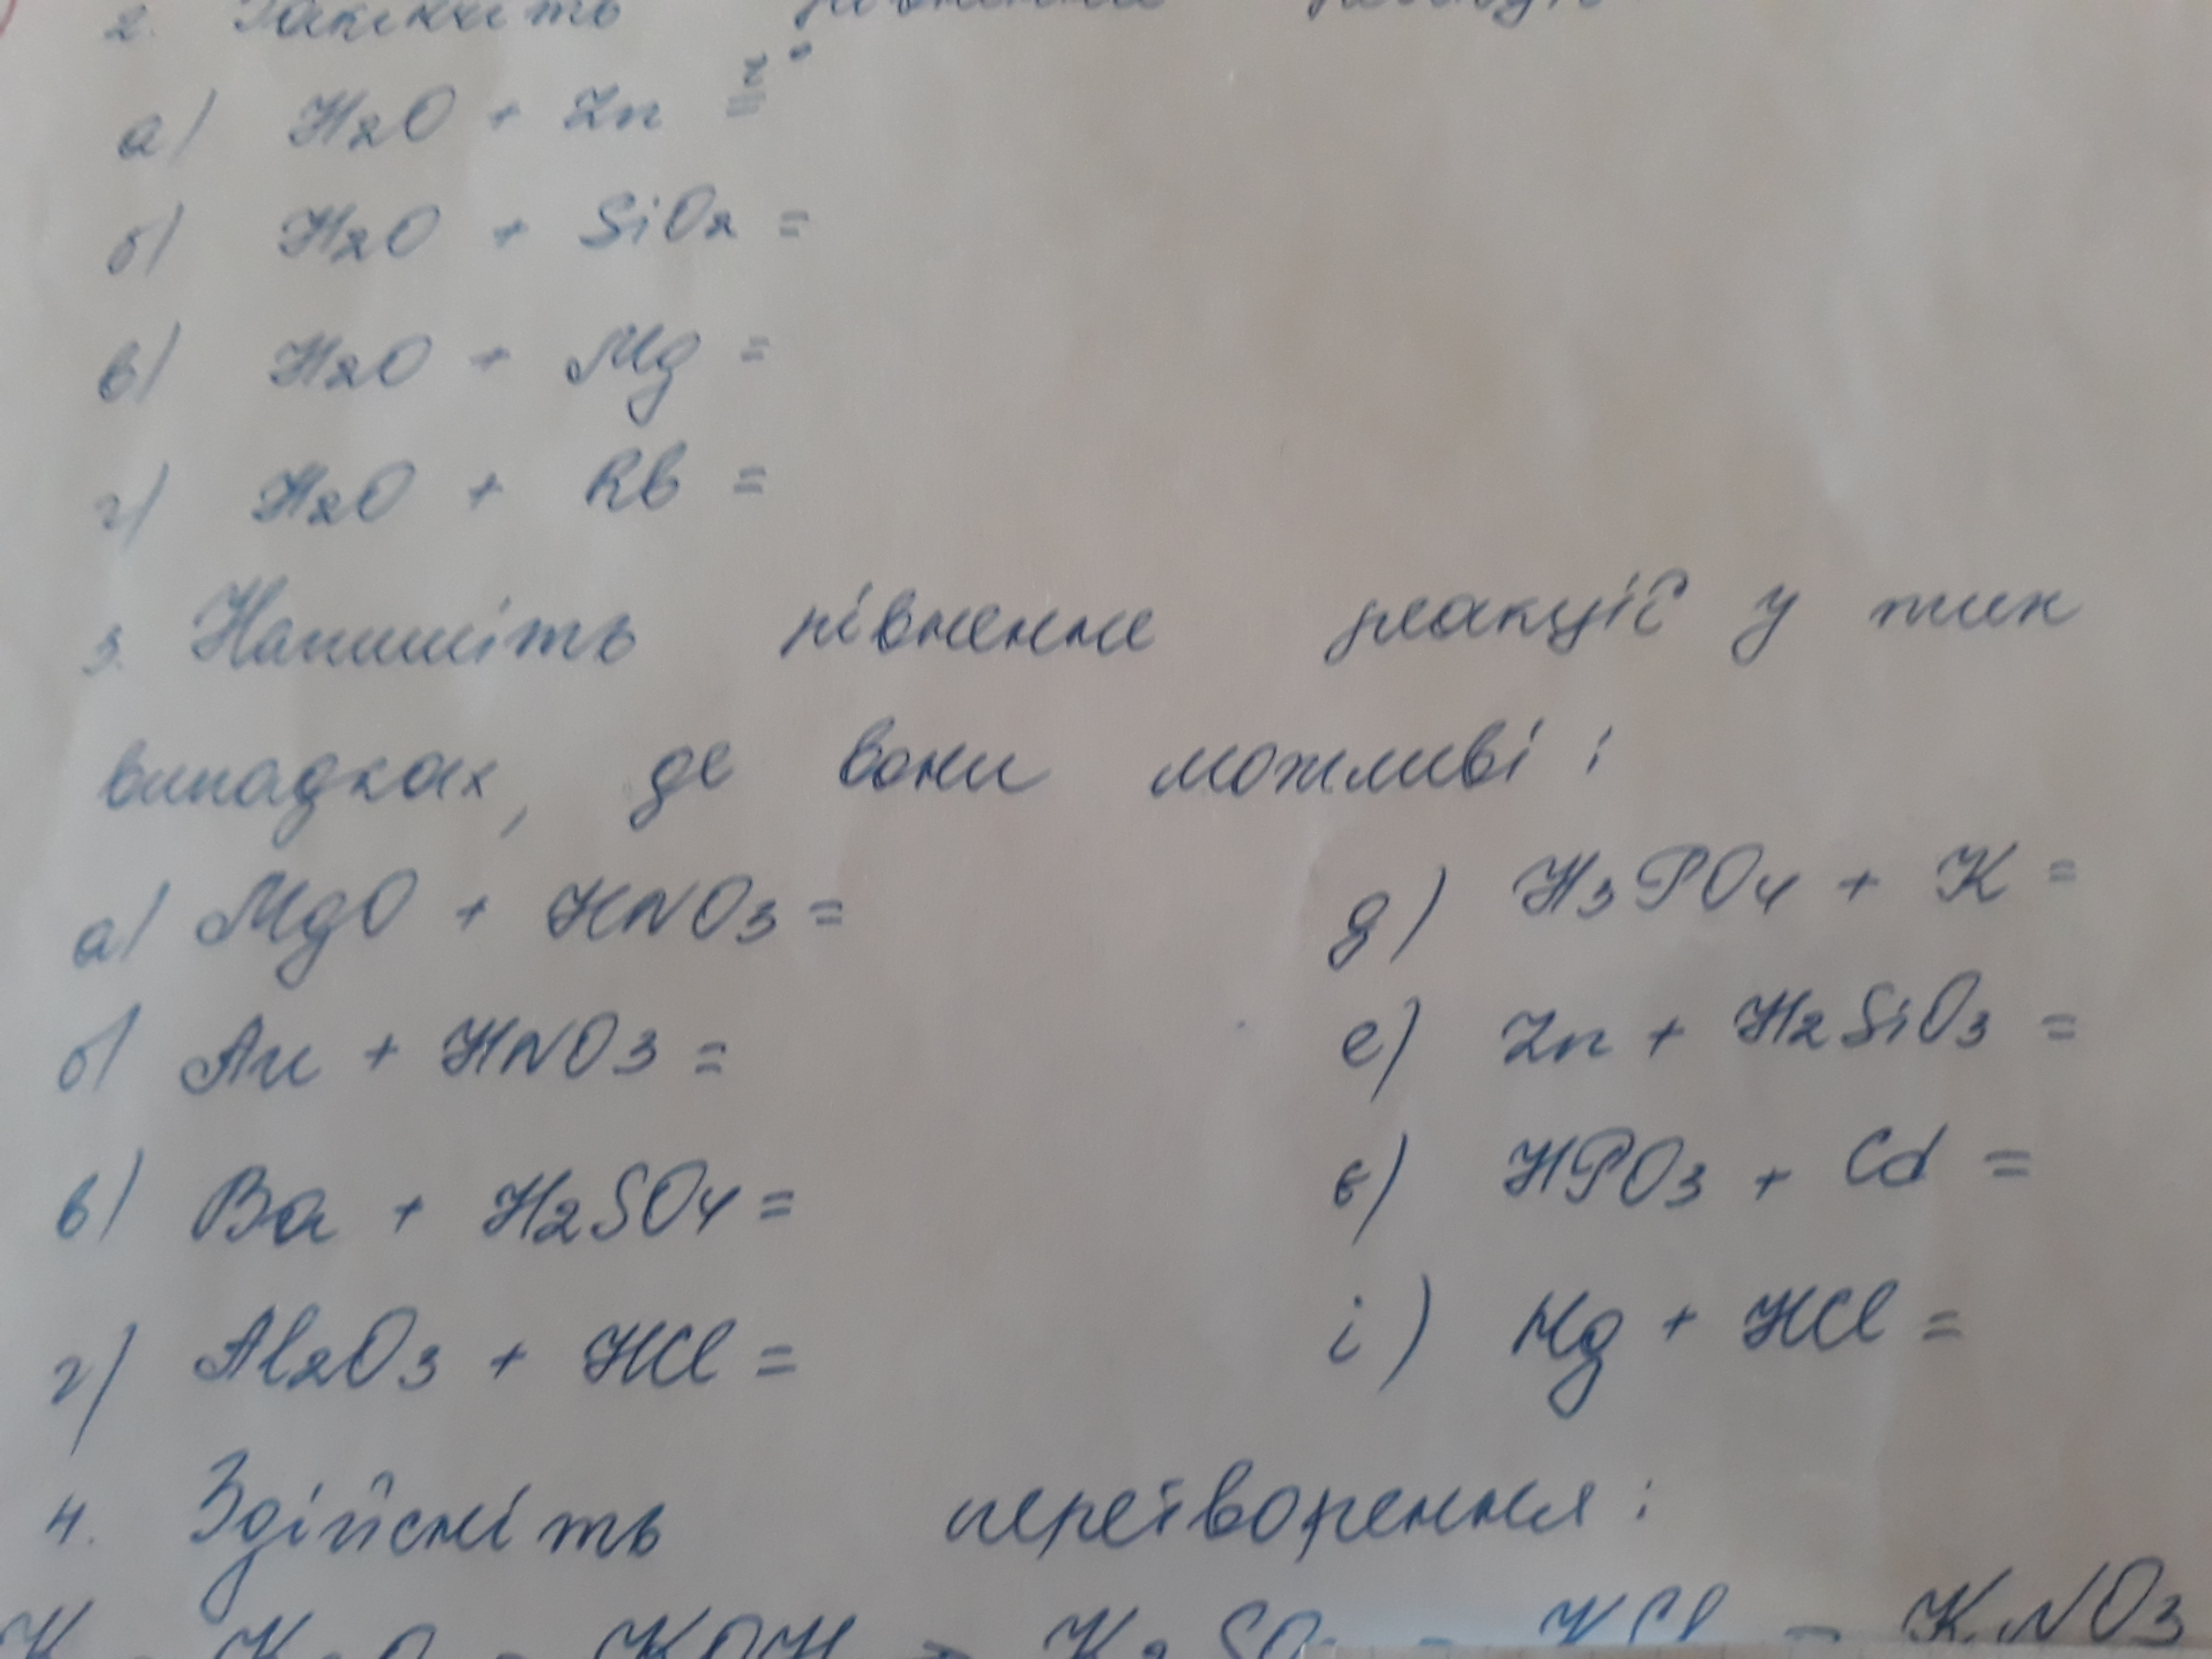 2. Закінчіть рівняння реакцій
а) H2O + Zn t°=
б) H2O + SiO2 =
в) H2O + Mg =
г) H2O + Rb =
3. Напишіть рівненне реакції у тих
випадках, де вони можливі :
а) MgO + HNO3 =
б) Au + HNO3 =
в) Ba + H2SO4 =
г) Al2O3 + HCl =
д) H3PO4 + K =
е) Zn + H2SiO3 =
є) HPO3 + Cd =
і) Hg + HCl =
4. Здійсніть перетворення :
KOH - K2SO4 - KCl - KNO3